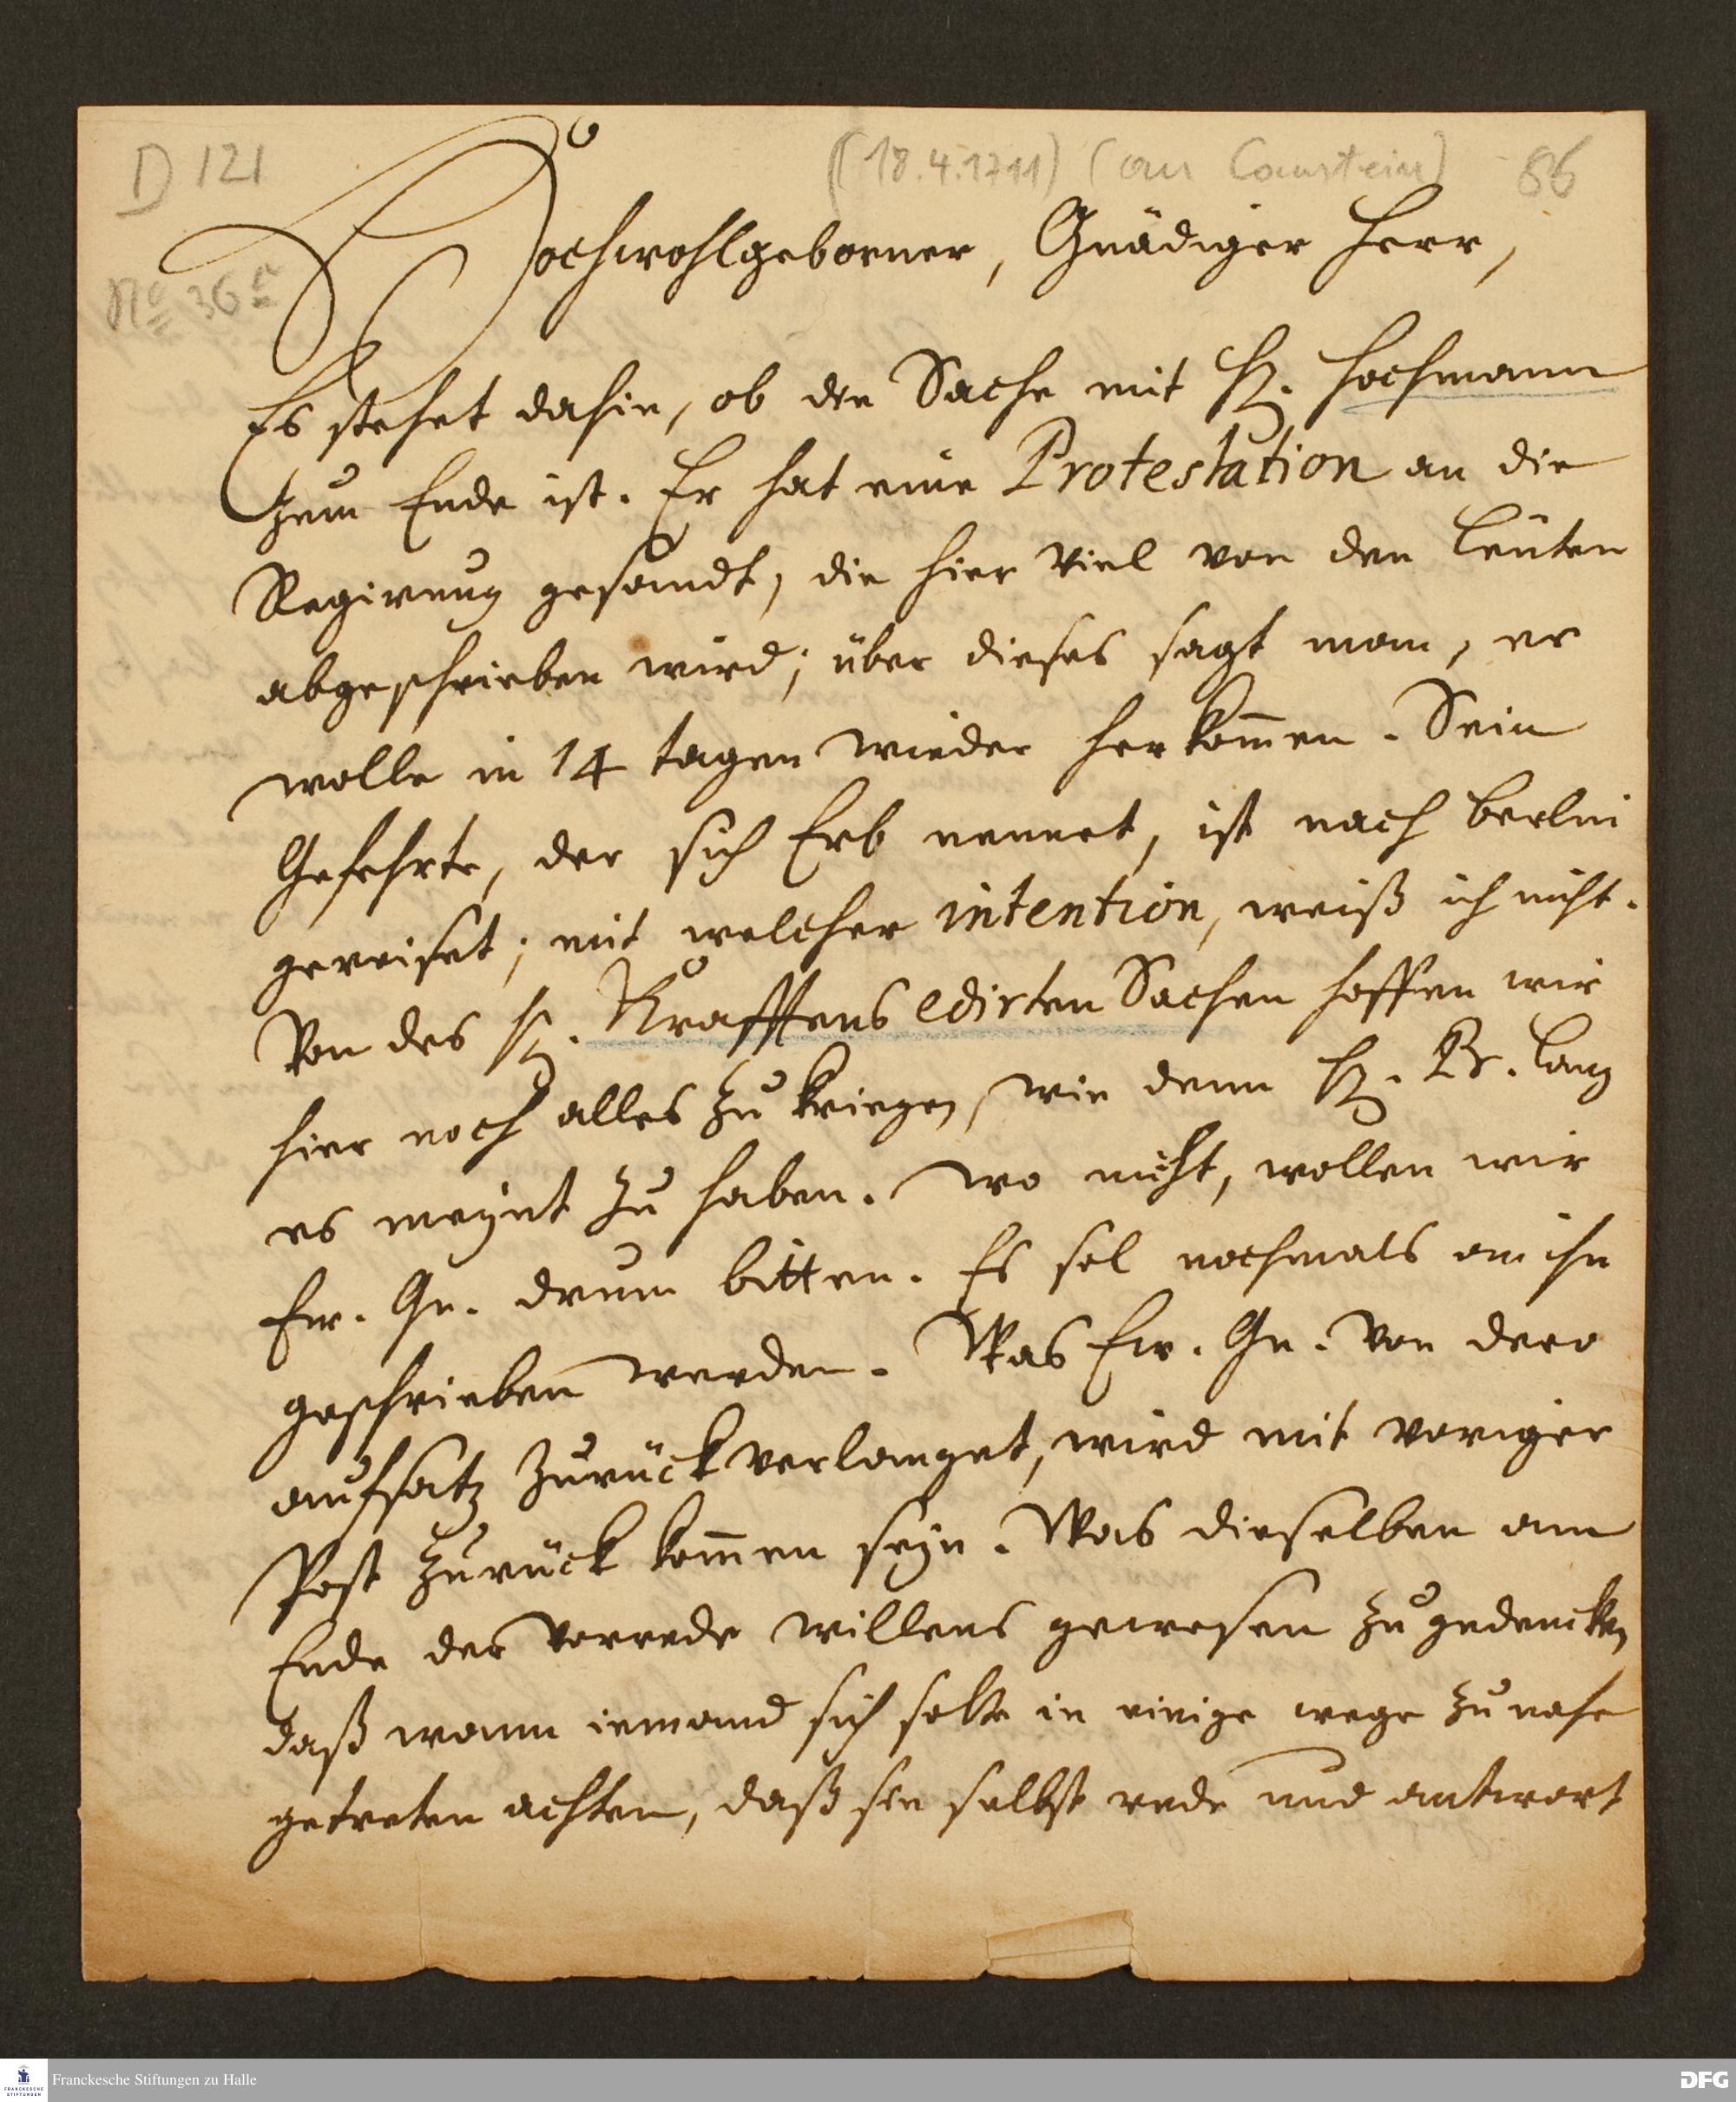 D 121
((18.4.1711) (an Canstein)
86
Hochwohlgeborner, Gnädiger Herr,
No 36
Es stehet dahin, ob die Sache mit H. Hochmann
zum Ende ist. Er hat eine Protestation an die
Regirung gesandt, die hier viel von den leuten
abgeschrieben wird; über dieses sagt man, er
wolle in 14 tagen wieder herkom̄en. Sein
Gefehrte, der sich Erb nennet, ist nach Berlin
gereiset; mit welcher intention, weiß ich nicht.
Von des H. Krafftens edirten Sachen hoffen wir
hier noch alles zu kriegen, wie denn H. Pr. Lang
es meynt zu haben. Wo nicht, wollen wir
Ew. Gn. drum bitten. Es sol nochmals an ihn
geschrieben werden. Was Ew. Gn. von dero
aufsatz zurückverlanget, wird mit voriger
Post zurück kom̄en seyn. Was dieselben am
Ende der Vorrede willens gewesen zu gedencken
daß wann iemand sich solte in einige wege zu nahe
getreten achten, daß sie selbst rede und antwort
Franckesche Stiftungen zu Halle
FRANCKESCHE
STIFTUNGEN
DFG